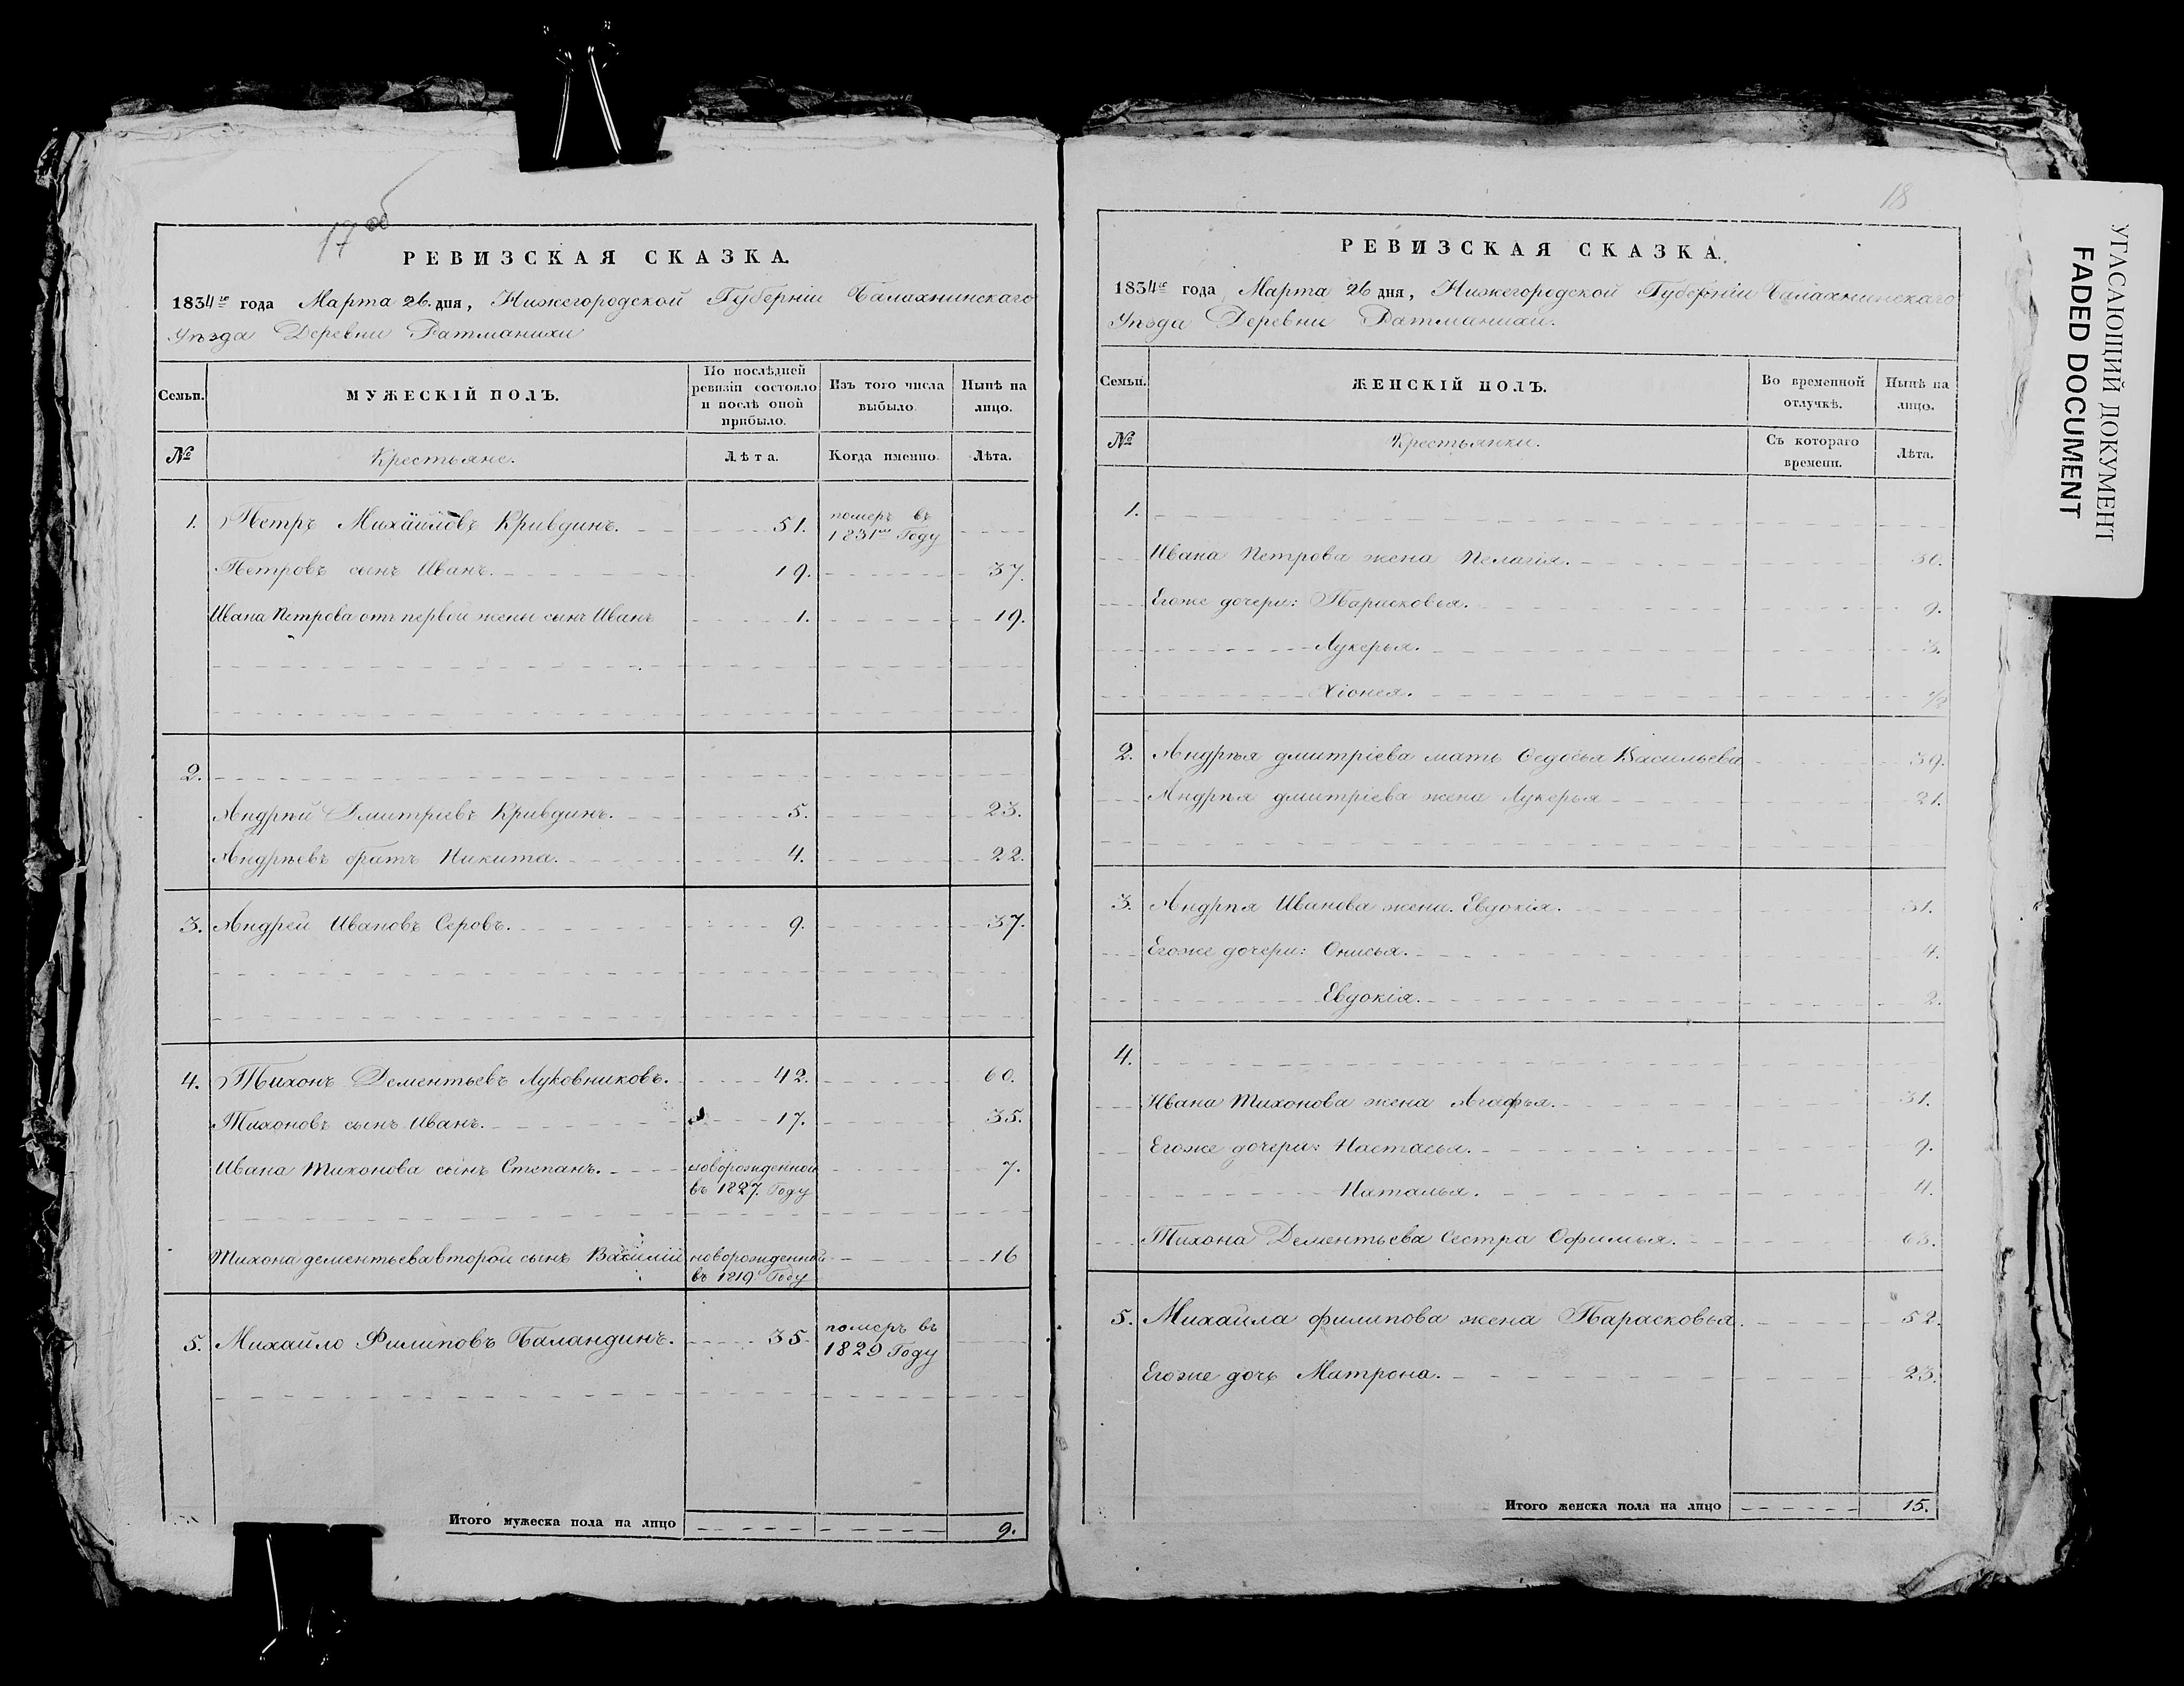 17 об
РЕВИЗСКАЯ СКАЗКА.
1834го года Марта 26. дня, Нижегородской Губерніи Балахнинскаго
Уѣзда Деревни Ратманихи
Семьи.
МУЖЕСКІЙ ПОЛЪ.
По послѣдней
ревизіи состояло
и послѣ оной
прибыло.
Изъ того числа
выбыло.
Нынѣ на
лицо.
№
Крестьяне.
Лѣта.
Когда именно.
Лѣта.
1. Петръ Михайловъ Кривдинъ. 51. померъ въ
1831мъ Году
Петровъ сынъ Иванъ. 19. 37.
Ивана Петрова отъ первой жены сынъ Иванъ 1. 19.
2.
Андрѣй Дмитріевъ Кривдинъ. 5. 23.
Андрѣевъ братъ Никита. 4. 22.
3. Андрей Ивановъ Серовъ. 9. 37.
4. Тихонъ Дементьевъ Луковниковъ. 42. 60.
Тихоновъ сынъ Иванъ. 17. 35.
Ивана Тихонова сынъ Степанъ. новорожденной 7.
въ 1827. Году
Тихона дементьева второй сынъ Василій новорожденной 16
въ 1819 Году
5. Михайло Филиповъ Баландинъ. 35. померъ въ
1829 Году
Итого мужеска пола на лицо 9.
18
РЕВИЗСКАЯ СКАЗКА.
1834го года Марта 26 дня, Нижегородской Губерніи Балахнинскаго
Уѣзда Деревни Ратманихи.
Семьи.
ЖЕНСКІЙ ПОЛЪ.
Во временной
отлучкѣ.
Нынѣ на
лицо.
№
Крестьянки.
Съ котораго
времени.
Лѣта.
1.
Ивана Петрова жена Пелагія.
Егоже дочери: Парасковья. 9.
Лукерья. 3.
Хіонея. 1/2
2. Андрѣя дмитріева мать Федосья Васильева 39.
Андрѣя дмитріева жена Лукерья 21.
3. Андрѣя Иванова жена. Евдокія. 31.
Егоже дочери: Онисья. 4.
Евдокія. 2.
4.
Ивана Тихонова жена Агафья. 31.
Егоже дочери: Настасья. 9.
Наталья. 4.
Тихона Дементьева Сестра Офимья. 63.
5. Михайла филипова жена Парасковья. 52.
Егоже дочь Матрона. 23.
Итого женска пола на лицо 15.
УГАСАЮЩИЙ ДОКУМЕНТ
FADED DOCUMENT